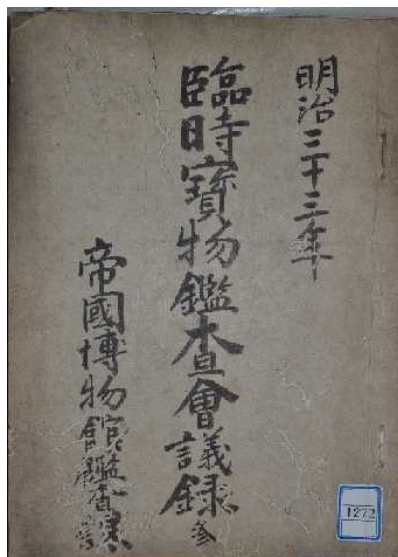 明治三十三年
臨時寶物鑑査會議録 参
帝國博物館鑑査課
1272